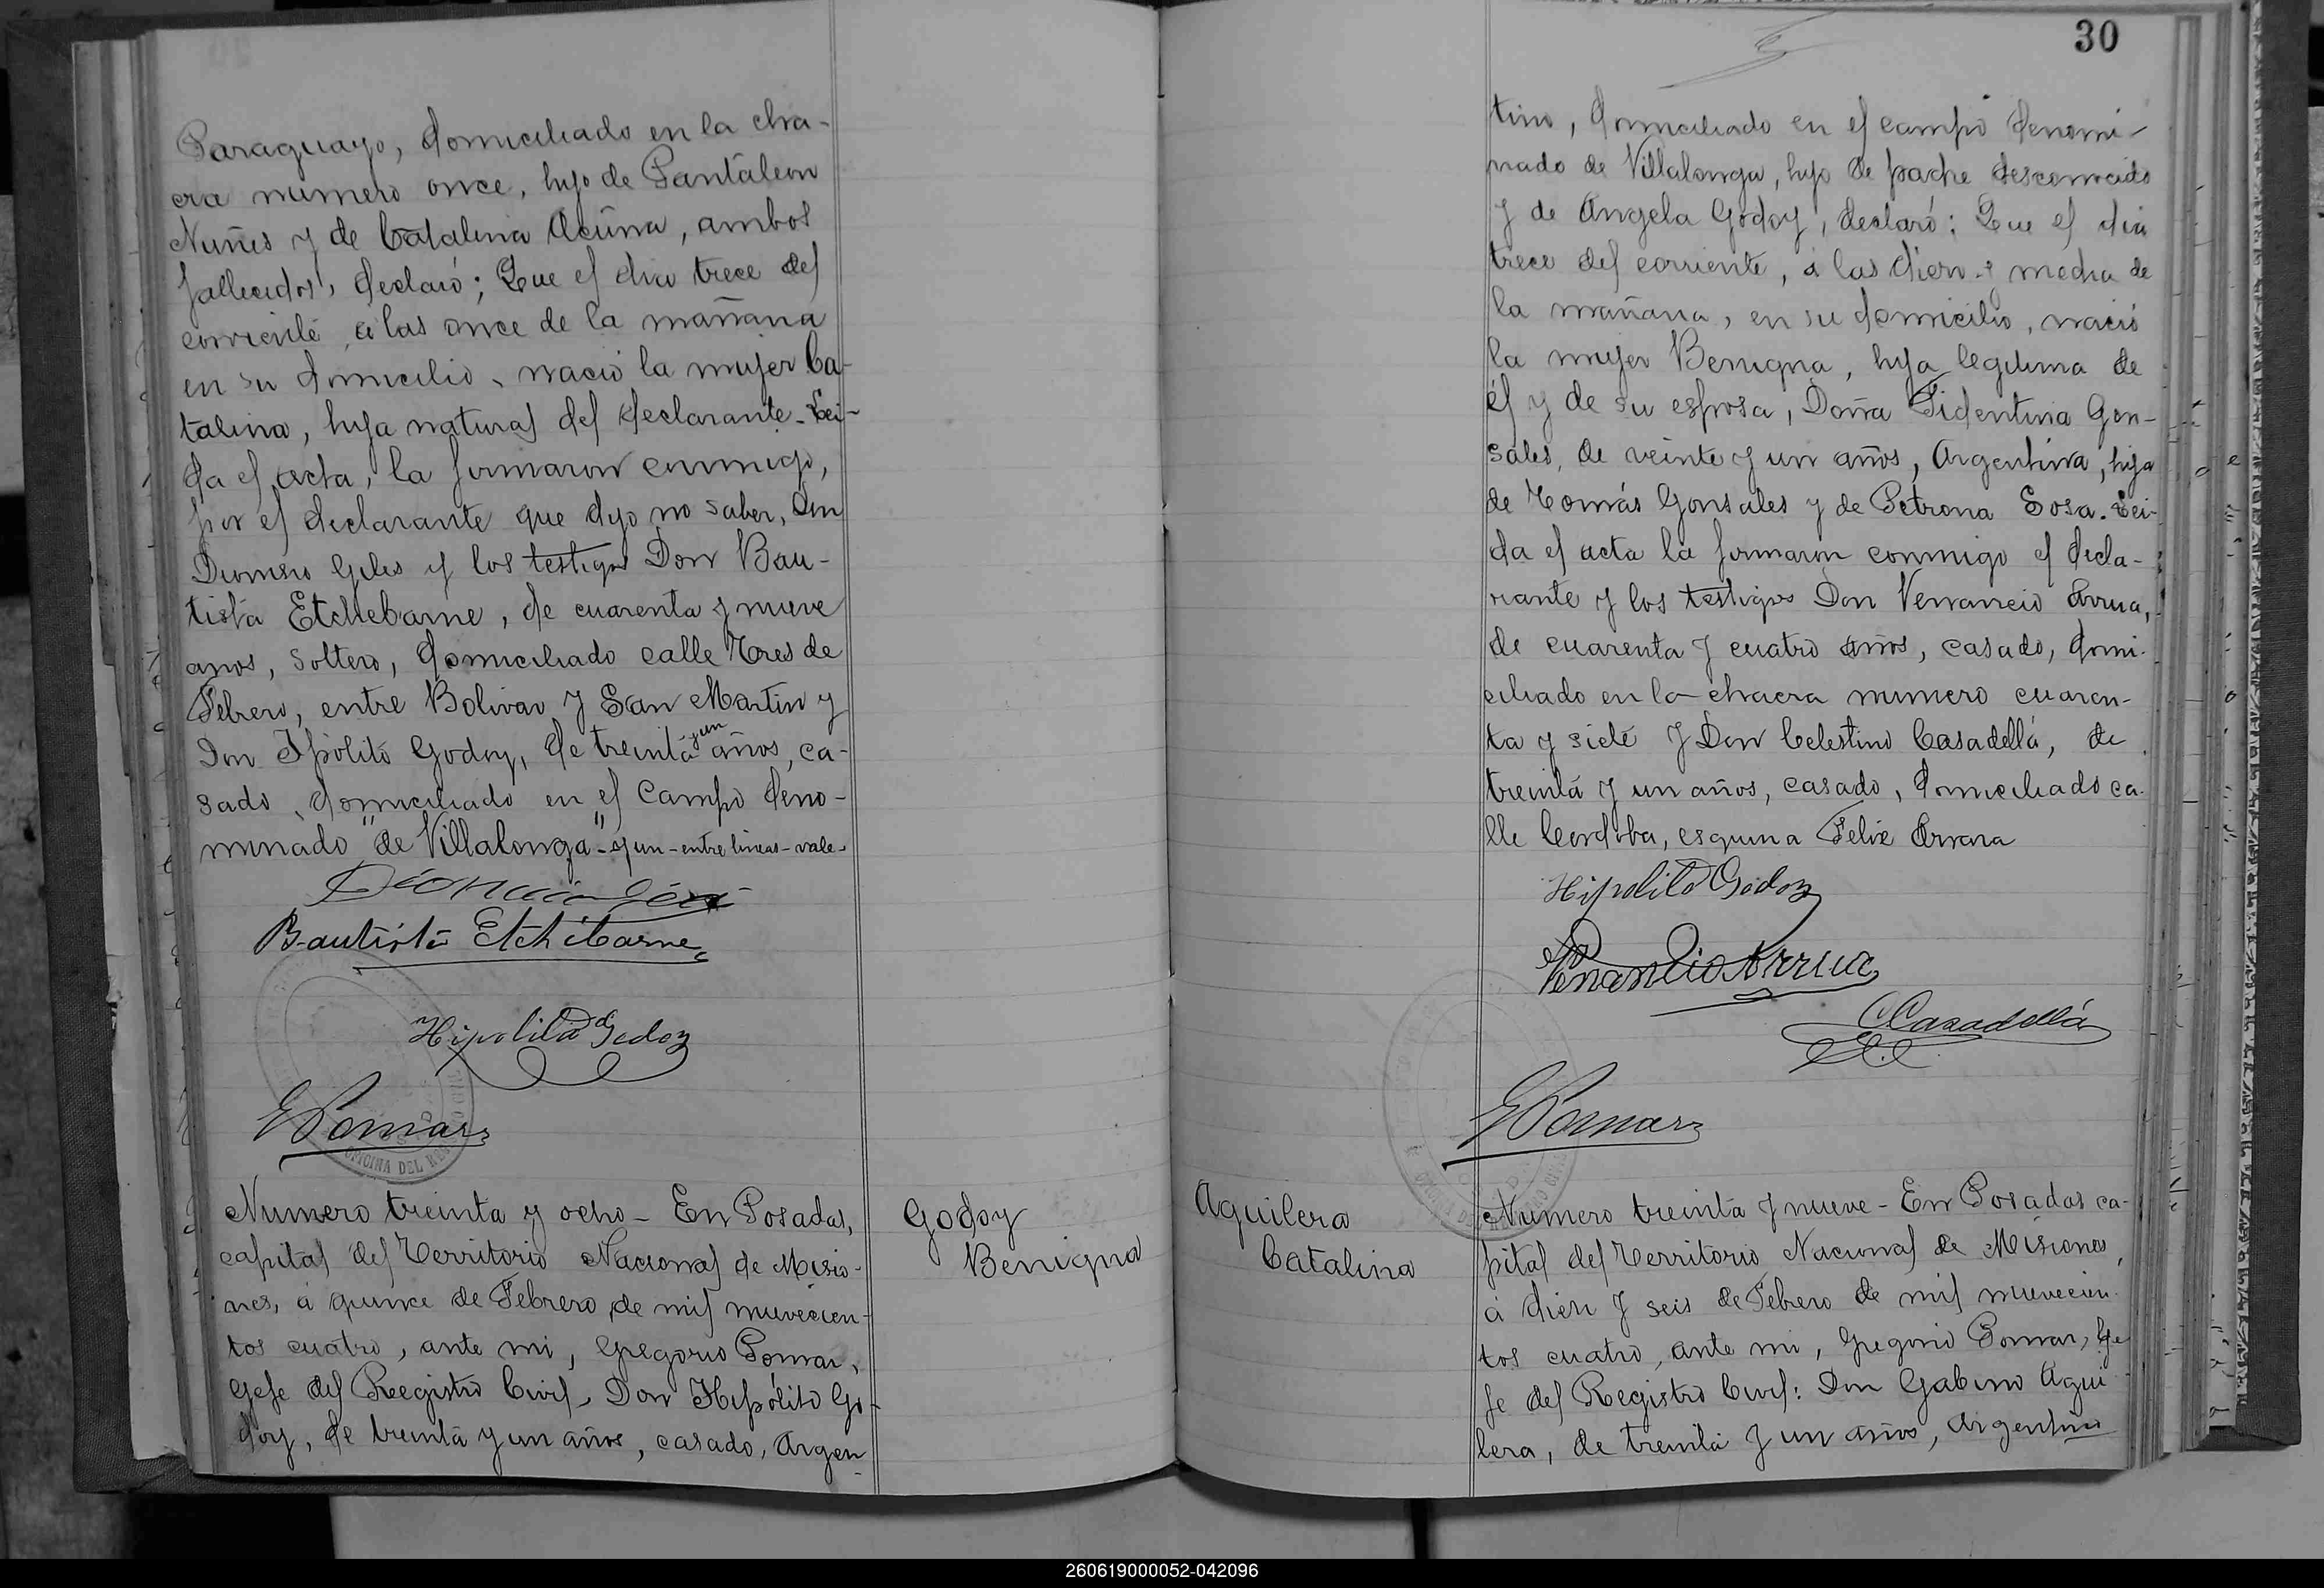 Paraguayo, domiciliado en la cha-
cra numero once, hijo de Pantaleon
Nuñes y de Catalina Acuña, ambos
fallecidos, declaró; Que el dia trece del
corriente, a las once de la mañana
en su domicilio, nació la mujer Ca-
talina, hija natural del declarante. Lei-
da el acta, la firmaron conmigo,
por el declarante que dijo no saber, Don
y los testigos Don Bau-
tista Etchebarne, de cuarenta y nueve
años, soltero, domiciliado calle Tres de
Febrero, entre Bolivar y San Martin y
Don Ipólito Godoy, de treinta y un años, ca-
sado, domiciliado en el Campo deno-
minado "de Villalonga" - y un - entre lineas - vale -
Bautista Etchebarne
Hipolito Godoy
G Pomar
Numero treinta y ocho - En Posadas,
capital del Territorio Nacional de Misio-
nes, a quince de Febrero de mil novecien-
tos cuatro, ante mi, Gregorio Pomar,
Gefe del Registro Civil, Don Hipólito Go-
doy, de treinta y un años, casado, Argen-
Godoy
Benigna
30
tino, domiciliado en el campo denomi-
nado de Villalonga, hijo de padre desconocido
y de Angela Godoy, declaró: Que el dia
trece del corriente, á las dies y media de
la mañana, en su domicilio, nació
la mujer Benigna, hija legitima de
él y de su esposa, Doña Gon-
sales, de veinte y un años, Argentina, hija
de Tomás Gonsales y de Petrona Sosa. Lei-
da el acta la firmaron conmigo el decla-
rante y los testigos Don Venancio Arrua,
de cuarenta y cuatro años, casado, domi-
ciliado en la chacra numero cuaren-
ta y siete y Don Celestino Casadellá, de
treinta y un años, casado, domiciliado ca-
lle Cordoba, esquina Felix Arrana
Hipolito Godoy
Venancio Arrua
C Casadellá
G Pomar
Aguilera
Catalina
Numero treinta y nueve - En Posadas ca-
pital del Territorio Nacional de Misiones,
á dies y seis de Febrero de mil novecien-
tos cuatro, ante mi, Gregorio Pomar, Ge-
fe del Registro Civil: Don Gabino Agui-
lera, de treinta y un años, Argentino
260619000052-042096